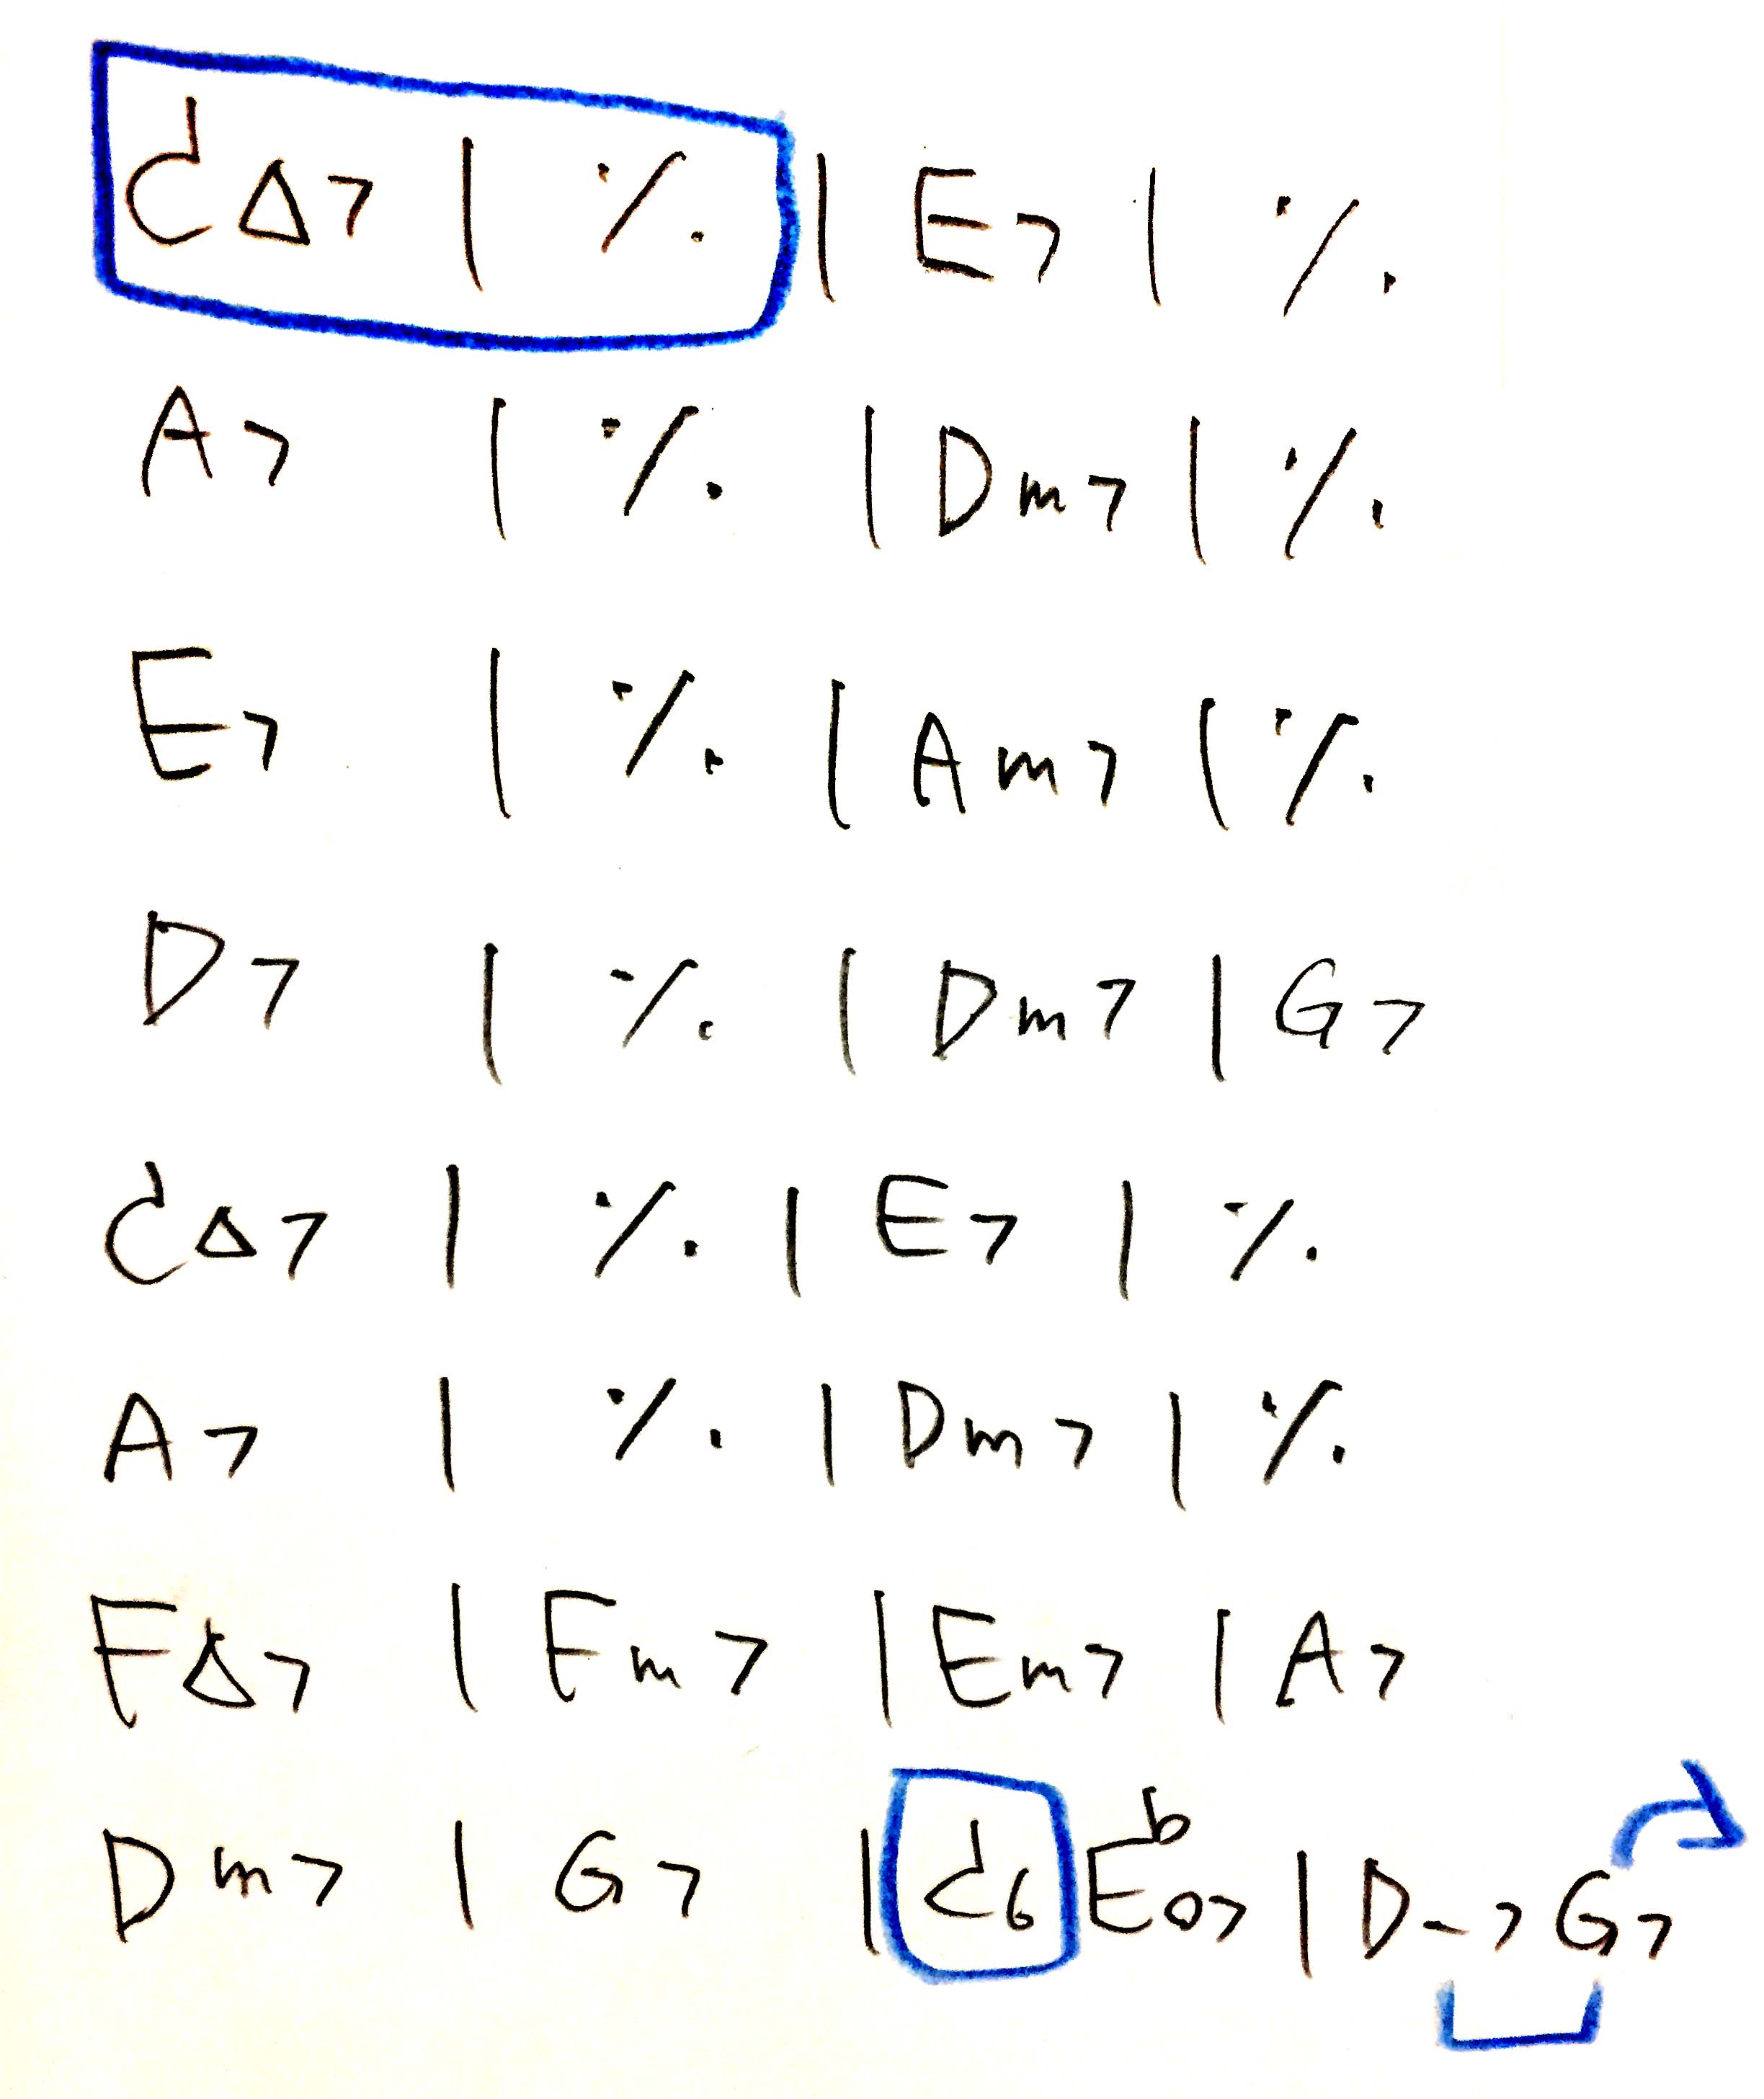 CΔ7 | % | E7 | %
A7 | % | Dm7 | %
E7 | % | Am7 | %
D7 | % | Dm7 | G7
CΔ7 | % | E7 | %
A7 | % | Dm7 | %
FΔ7 | Fm7 | Em7 | A7
Dm7 | G7 | C6 E♭o7 | D-7 G7